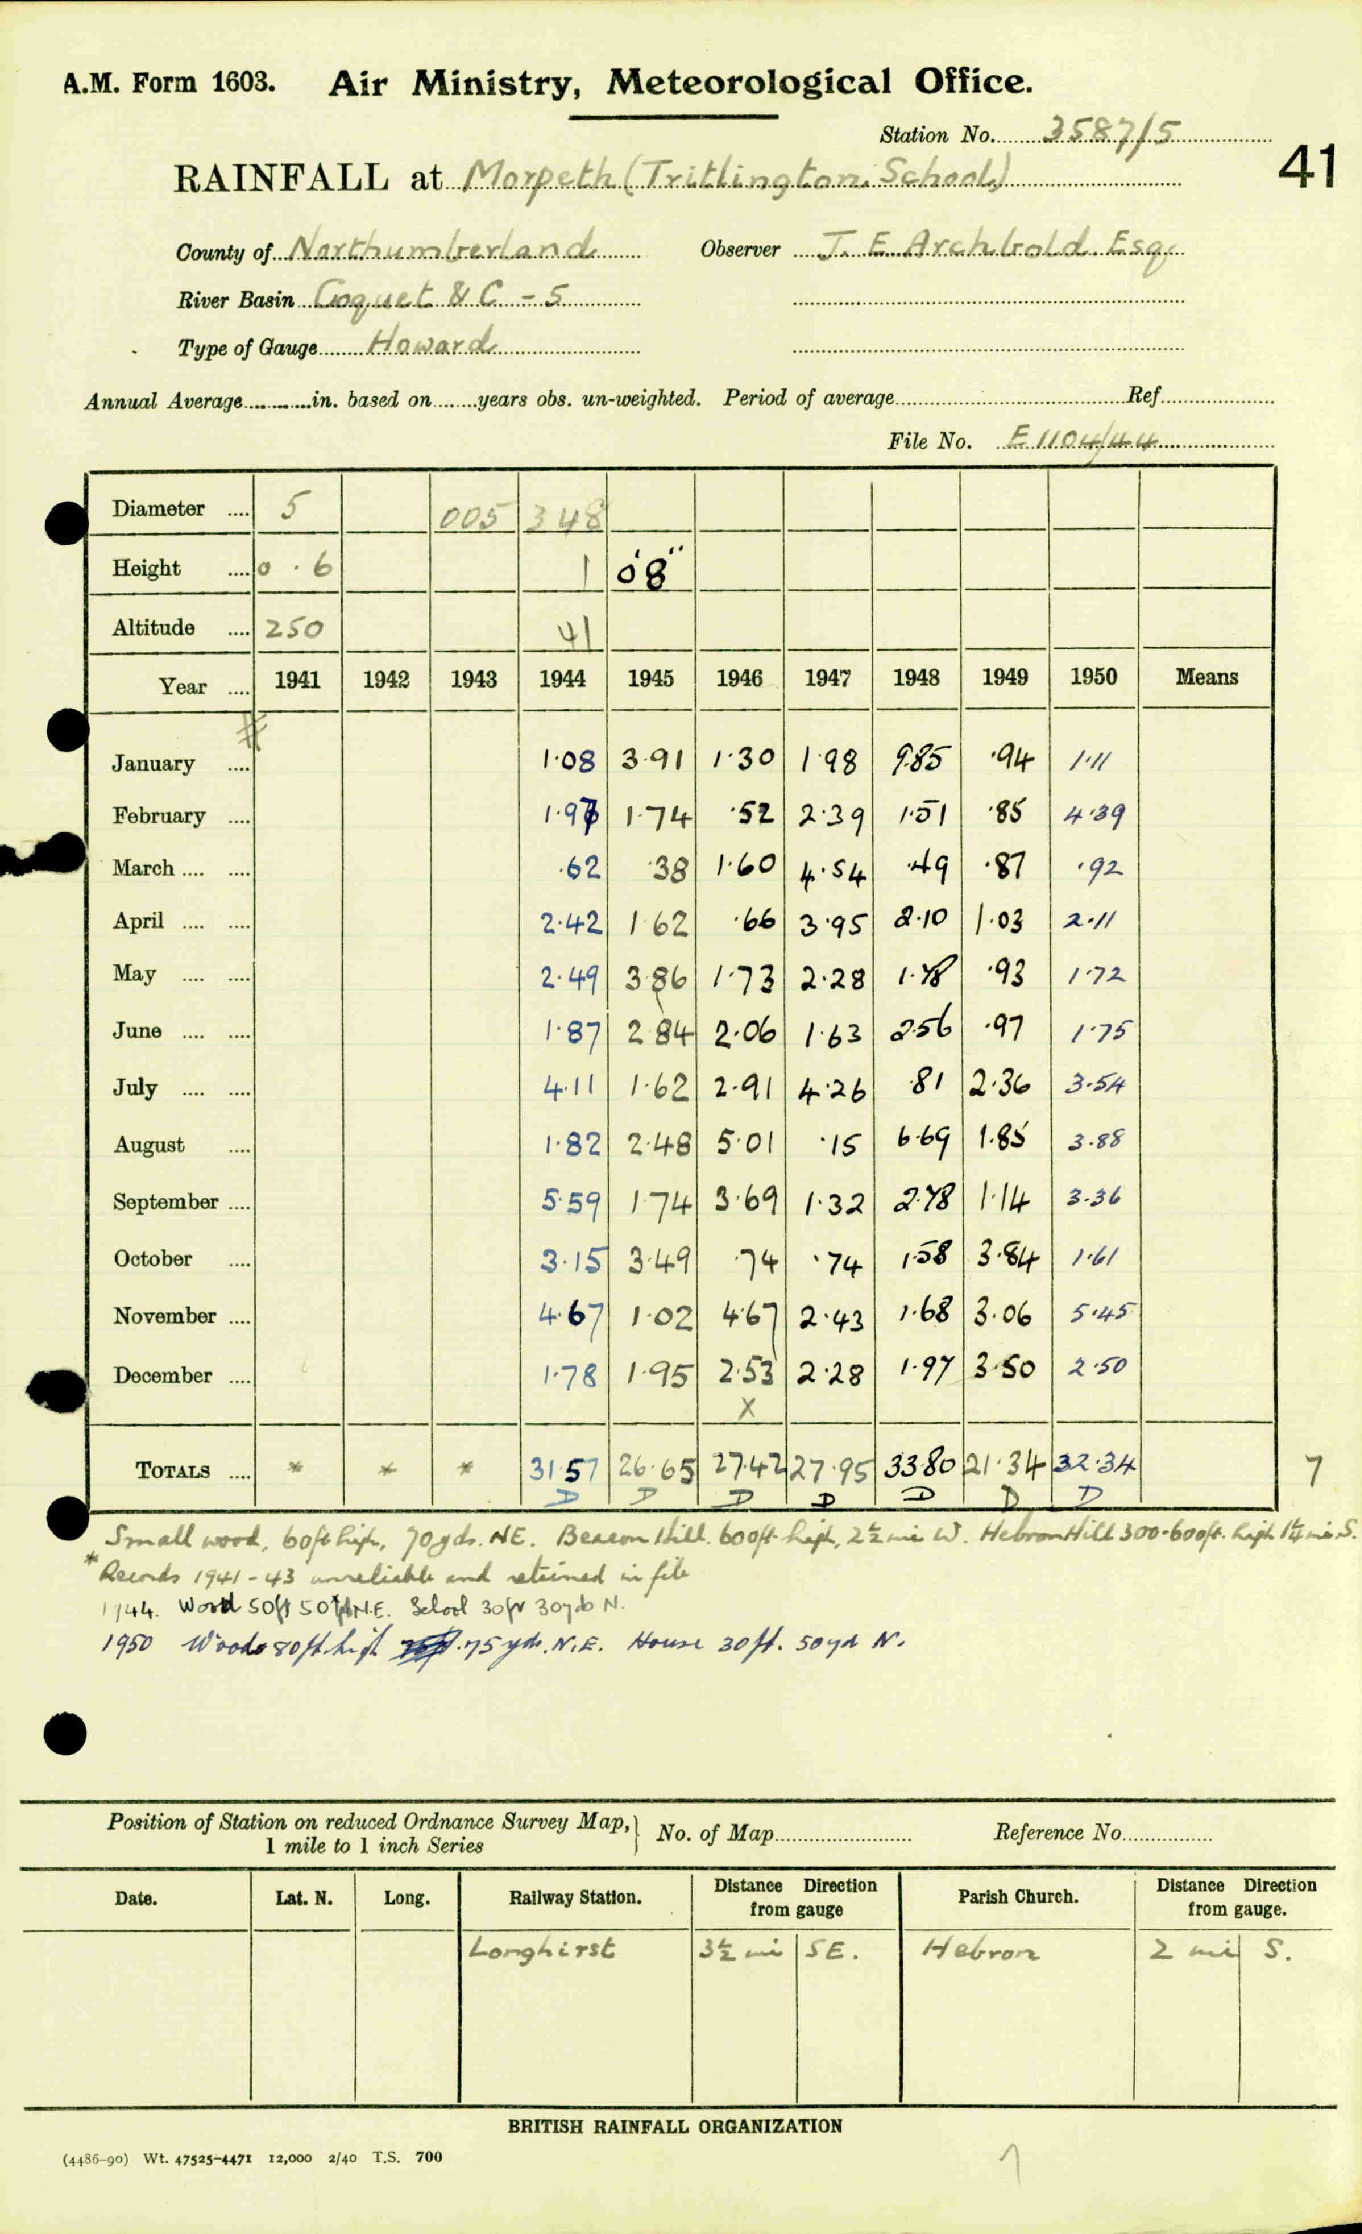 A.M. Form 1603. Air Ministry, Meteorological Office.
Station No. 3587/5
41
RAINFALL at Morpeth (Tritlington School)
County of Northumberland Observer J. E. Archbold Esq.
River Basin Coquet &C - 5
Type of Gauge Howard
Annual Average in. based on years obs. un-weighted. Period of average Ref.
File No. E 1104/44
Diameter .... 5 005 348
Height .... 0 . 6 1 0'8"
Altitude .... 250 41
Year .... 1941 1942 1943 1944 1945 1946 1947 1948 1949 1950 Means
January .... 1.08 3.91 1.30 1.98 9.85 .94 1.11
February .... 1.97 1.74 .52 2.39 1.51 .85 4.39
March .... .... .62 .38 1.60 4.54 .49 .87 .92
April .... .... 2.42 1.62 .66 3.95 2.10 1.03 2.11
May .... .... 2.49 3.86 1.73 2.28 1.78 .93 1.72
June .... .... 1.87 2.84 2.06 1.63 2.56 .97 1.75
July .... .... 4.11 1.62 2.91 4.26 .81 2.36 3.54
August .... 1.82 2.48 5.01 .15 6.69 1.85 3.88
September .... 5.59 1.74 3.69 1.32 2.78 1.14 3.36
October .... 3.15 3.49 .74 .74 1.58 3.84 1.61
November .... 4.67 1.02 4.67 2.43 1.68 3.06 5.45
December .... 1.78 1.95 2.53 2.28 1.97 3.50 2.50
X
TOTALS .... * * * 31.57 26.65 27.42 27.95 33.80 21.34 32.34 7
D D D D D D D
Small wood, 60ft high, 70yds. NE. Beacon Hill. 600ft. high, 2½ mi W. Hebron Hill 300-600ft. high 1¼ mi. S.
* Records 1941 - 43 unreliable and retained in file
1944. Wood 50ft 50yd N.E. School 30ft 30yds N.
1950 Woods 80ft. high 75 yds. N.E. House 30ft. 50yd N.
Position of Station on reduced Ordnance Survey Map,
1 mile to 1 inch Series
No. of Map Reference No.
Date. Lat. N. Long. Railway Station. Distance Direction from gauge Parish Church. Distance Direction from gauge.
Longhirst 3½ mi SE. Hebron 2 mi S.
BRITISH RAINFALL ORGANIZATION
(4486-90) Wt. 47525-4471 12,000 2/40 T.S. 700